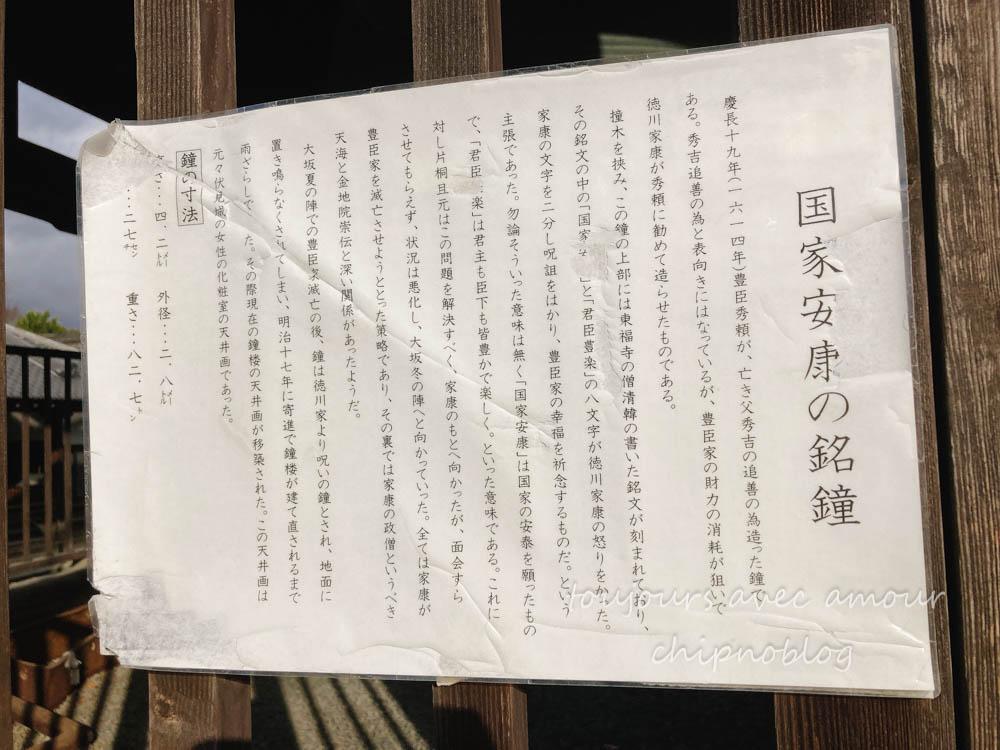 国家安康の銘鐘
慶長十九年(一六一四年)豊臣秀頼が、亡き父秀吉の追善の為造った鐘で
ある。秀吉追善の為と表向きにはなっているが、豊臣家の財力の消耗が狙いで
徳川家康が秀頼に勧めて造らせたものである。
撞木を挟み、この鐘の上部には東福寺の僧清韓の書いた銘文が刻まれており、
その銘文の中の「国家安 」と「君臣豊楽」の八文字が徳川家康の怒りをかった。
家康の文字を二分し呪詛をはかり、豊臣家の幸福を祈念するものだ。という
主張であった。勿論そういった意味は無く「国家安康」は国家の安泰を願ったもの
で、「君臣 楽」は君主も臣下も皆豊かで楽しく。といった意味である。これに
対し片桐且元はこの問題を解決すべく、家康のもとへ向かったが、面会すら
させてもらえず、状況は悪化し、大坂冬の陣へと向かっていった。全ては家康が
豊臣家を滅亡させようととった策略であり、その裏では家康の政僧というべき
天海と金地院崇伝と深い関係があったようだ。
大坂夏の陣での豊臣家滅亡の後、鐘は徳川家より呪いの鐘とされ、地面に
置き鳴らなくされてしまい、明治十七年に寄進で鐘楼が建て直されるまで
雨ざらしで た。その際現在の鐘楼の天井画が移築された。この天井画は
元々伏見城の女性の化粧室の天井画であった。
鐘の寸法
さ・・・四.二メートル 外径・・・二.八メートル
・・・二七センチ 重さ・・・八二.七トン
toujours avec amour
chipnoblog